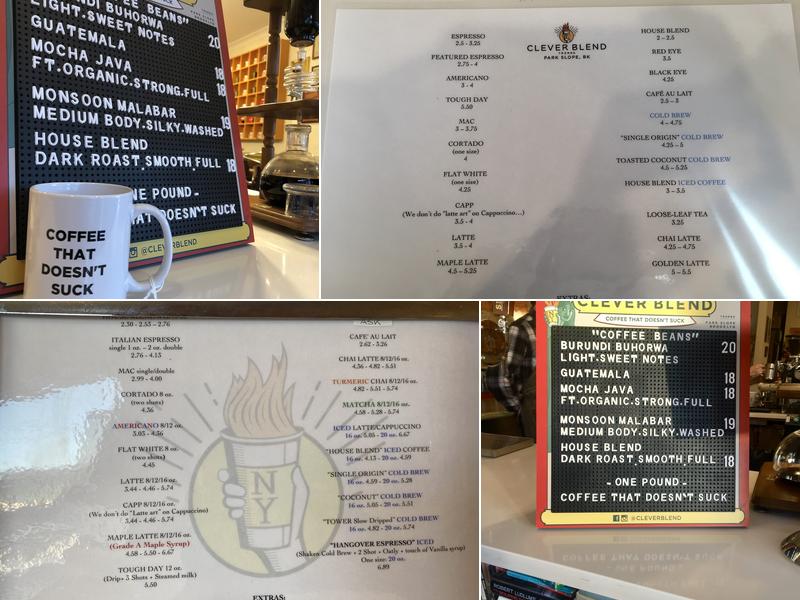 COFFEE BEANS"
BURUNDI BUHORWA
LIGHT.SWEET NOTES 20
GUATEMALA
MOCHA JAVA 18
FT.ORGANIC.STRONG.FULL 18
MONSOON MALABAR
MEDIUM BODY.SILKY.WASHED 19
HOUSE BLEND
DARK ROAST.SMOOTH.FULL 18
ONE POUND -
THAT DOESN'T SUCK
@CLEVERBLEND
COFFEE
THAT
DOESN'T
SUCK
CLEVER BLEND
PARK SLOPE, BK
ESPRESSO
2.5 - 3.25
FEATURED ESPRESSO
2.75 - 4
AMERICANO
3 - 4
TOUGH DAY
5.50
MAC
3 – 3.75
CORTADO
(one size)
4
FLAT WHITE
(one size)
4.25
CAPP
(We don't do "latte art" on Cappuccino...)
3.5 - 4
LATTE
3.5 - 4
MAPLE LATTE
4.5 – 5.25
HOUSE BLEND
2 – 2.5
RED EYE
3.5
BLACK EYE
4.25
CAFÉ AU LAIT
2.5 – 3
COLD BREW
4 – 4.75
"SINGLE ORIGIN" COLD BREW
4.25 – 5
TOASTED COCONUT COLD BREW
4.5 – 5.25
HOUSE BLEND ICED COFFEE
3 – 3.5
LOOSE-LEAF TEA
3.25
CHAI LATTE
4.25 – 4.75
GOLDEN LATTE
5 – 5.5
EXTRAS:
2.30 - 2.53 – 2.76
ITALIAN ESPRESSO
single 1 oz. – 2 oz. double
2.76 - 4.13
MAC single/double
2.99 - 4.00
CORTADO 8 oz.
(two shots)
4.36
AMERICANO 8/12 oz.
3.03 - 4.36
FLAT WHITE 8 oz.
(two shots)
4.45
LATTE 8/12/16 oz.
3.44 - 4.46 - 5.74
CAPP 8/12/16 oz.
(We don't do "Latte art" on Cappuccino)
3.44 - 4.46 - 5.74
MAPLE LATTE 8/12/16 oz.
(Grade A Maple Syrup)
4.58 - 5.50 - 6.67
TOUGH DAY 12 oz.
(Drip+ 3 Shots + Steamed milk)
5.50
NY
ASK
CAFE' AU LAIT
2.62 - 3.26
CHAI LATTE 8/12/16 oz.
4.36 - 4.82 - 5.51
TURMERIC CHAI 8/12/16 oz.
4.82 - 5.51 - 5.74
MATCHA 8/12/16 oz.
4.58 - 5.28 - 5.74
ICED LATTE/CAPPUCCINO
16 oz. 5.05 - 20 oz. 6.67
"HOUSE BLEND" ICED COFFEE
16 oz. 4.13 - 20 oz. 4.59
"SINGLE ORIGIN" COLD BREW
16 oz. 4.59 - 20 oz. 5.28
"COCONUT" COLD BREW
16 oz. 5.05 - 20 oz. 5.51
"TOWER Slow Dripped" COLD BREW
16 oz. 4.82 - 20 oz. 5.74
"HANGOVER ESPRESSO" ICED
(Shaken Cold Brew + 2 Shot + Oatly + touch of Vanilla syrup)
One size: 20 oz.
6.89
EXTRAS:
CLEVER BLEND
COFFEE THAT DOESN'T SUCK
PARK SLOPE
BROOKLYN
"COFFEE BEANS"
BURUNDI BUHORWA 20
LIGHT.SWEET NOTES
GUATEMALA 18
MOCHA JAVA 18
FT.ORGANIC.STRONG.FULL
MONSOON MALABAR 19
MEDIUM BODY.SILKY.WASHED
HOUSE BLEND
DARK ROAST.SMOOTH.FULL 18
- ONE POUND -
COFFEE THAT DOESN'T SUCK
@CLEVERBLEND
ROBERT LUDLUM